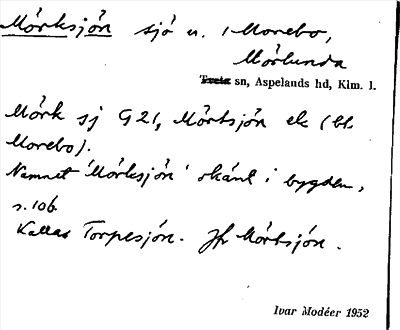 Mörksjön sjö n. i Morebo,
Mörlunda
Tveta sn, Aspelands hd, Klm. l.
Mörk sj G21, Mörtsjön ek (bl.
Morebo).
Namnet 'Mörksjön' okänt i bygden,
s. 106.
Kallas Torpesjön. Jfr Mörtsjön.
Ivar Modéer 1952